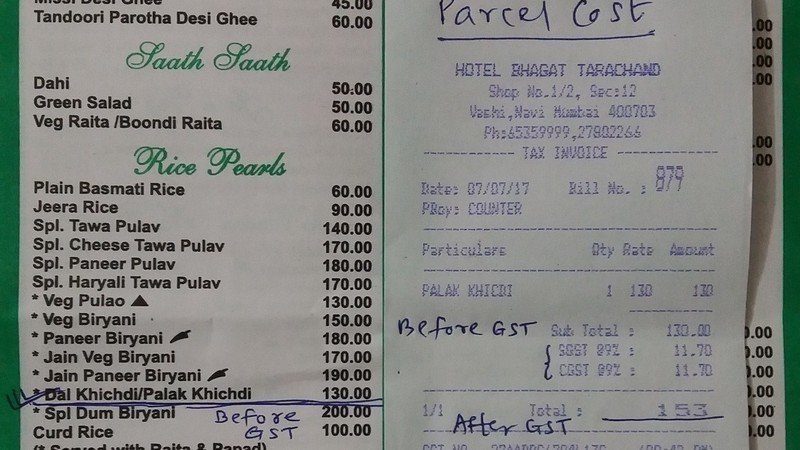 Missi Desi Ghee 45.00
Tandoori Parotha Desi Ghee 60.00
Saath Saath
Dahi 50.00
Green Salad 50.00
Veg Raita /Boondi Raita 60.00
Rice Pearls
Plain Basmati Rice 60.00
Jeera Rice 90.00
Spl. Tawa Pulav 140.00
Spl. Cheese Tawa Pulav 170.00
Spl. Paneer Pulav 180.00
Spl. Haryali Tawa Pulav 170.00
* Veg Pulao ▲ 130.00
* Veg Biryani 150.00
* Paneer Biryani 180.00
* Jain Veg Biryani 170.00
* Jain Paneer Biryani 190.00
* Dal Khichdi/Palak Khichdi 130.00
* Spl Dum Biryani 200.00
Before GST
Curd Rice 100.00
(* Served with Raita & Papad)
Parcel Cost
HOTEL BHAGAT TARACHAND
Shop No.1/2, Sec:12
Vashi,Navi Mumbai 400703
Ph:65359999,27802266
TAX INVOICE
Date: 07/07/17 Bill No. :
PBoy: COUNTER
Particulars Qty Rate Amount
PALAK KHICDI 1 130 130
Before GST Sub Total : 130.00
SGST @9% : 11.70
CGST @9% : 11.70
1/1 Total : 153
After GST
.00
.00
.00
.00
.00
.00
0.00
0.00
0.00
0.00
0.00
0.00